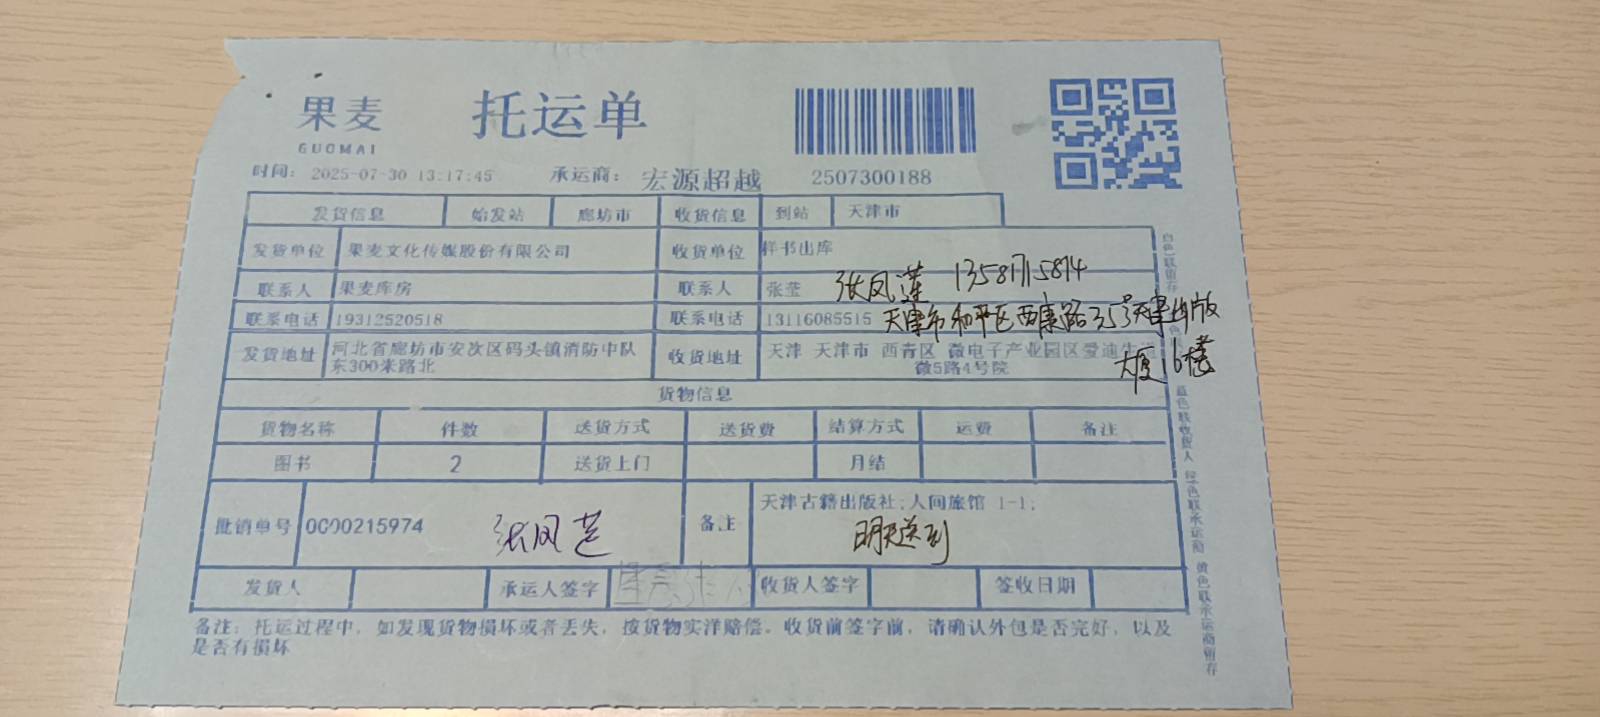 果麦
GUOMAI
托运单
时间: 2025-07-30 13:17:45 承运商: 宏源超越 2507300188
发货信息 始发站 廊坊市 收货信息 到站 天津市
发货单位 果麦文化传媒股份有限公司 收货单位 样书出库
联系人 果麦库房 联系人 张莹 张凤莲 13581715814
联系电话 19312520518 联系电话 13116085515 天津市和平区西康路35号天津出版
发货地址 河北省廊坊市安次区码头镇消防中队 收货地址 天津 天津市 西青区 微电子产业园区爱迪生道
东300米路北 微5路4号院 大厦16楼
货物信息
货物名称 件数 送货方式 送货费 结算方式 运费 备注
图书 2 送货上门 月结
批销单号 0000215974 张凤莲 备注 天津古籍出版社;人间旅馆 1-1;
明天送到
发货人 承运人签字 收货人签字 签收日期
备注: 托运过程中, 如发现货物损坏或者丢失, 按货物实洋赔偿。收货前签字前, 请确认外包是否完好, 以及
是否有损坏
白色联留存 蓝色联收货人 绿色联承运商 黄色联承运商留存